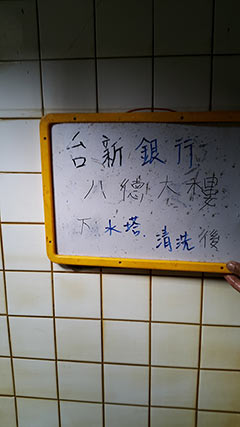 台新銀行
八德大樓
下水塔 清洗後